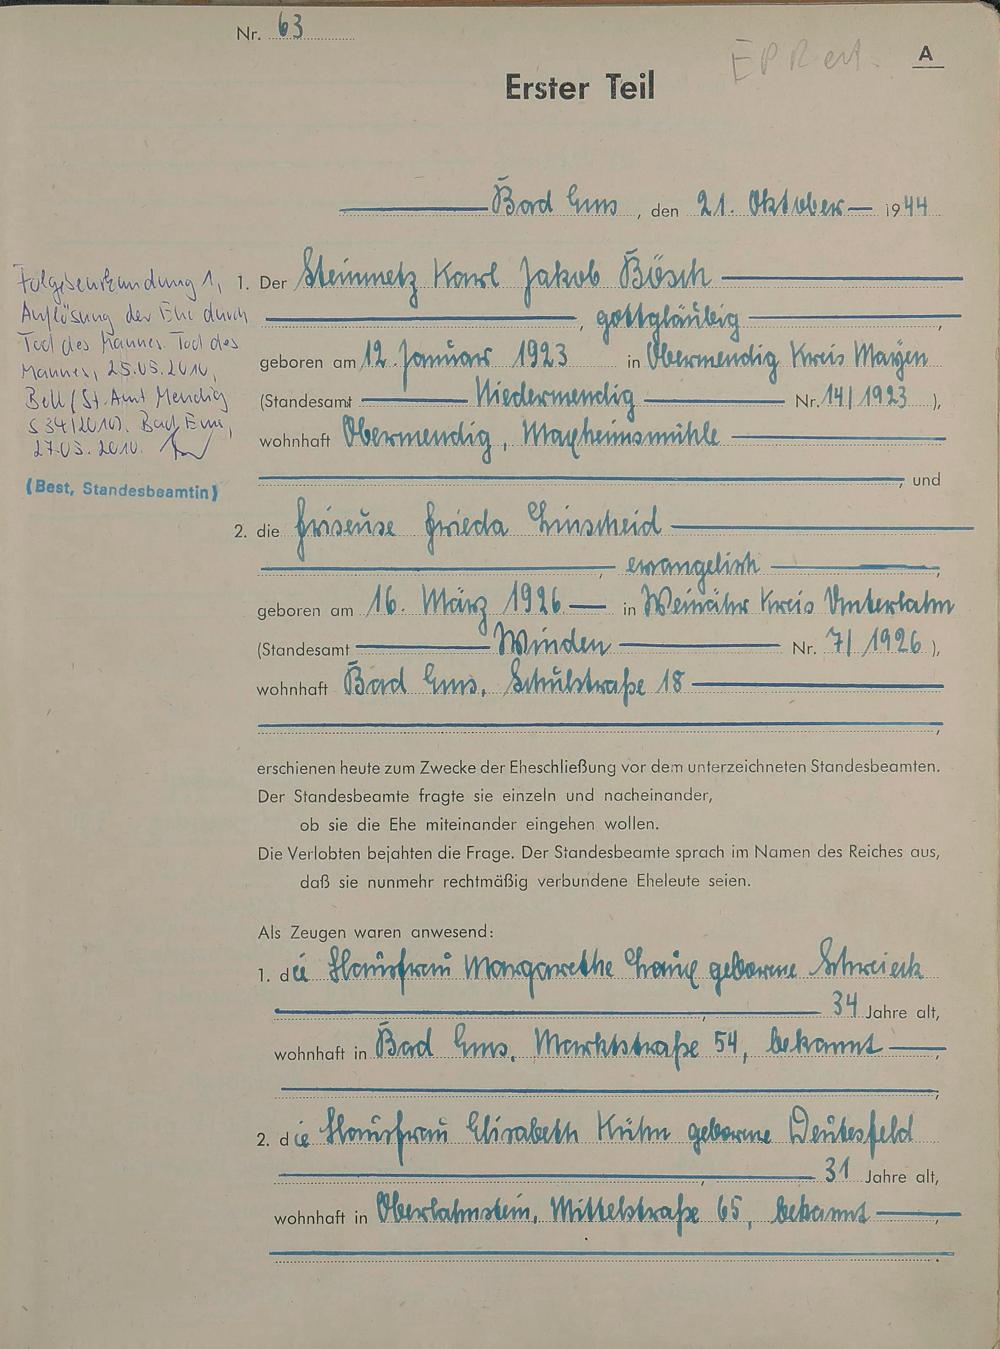 Nr. 63
A
Erster Teil
Bad Ems, den 21. Oktober 1944
1. Der Steinmetz Karl Jakob Bösch
, gottgläubig,
geboren am 12. Januar 1923 in Obermendig Kreis Mayen
(Standesamt Niedermendig Nr. 14/1923),
wohnhaft Obermendig,
, und
2. die Friseuse Frieda Einscheid
, evangelisch,
geboren am 16. März 1926 in Weinähr Kreis Unterlahn
(Standesamt Winden Nr. 7/1926),
wohnhaft Bad Ems, Schulstraße 18
,
erschienen heute zum Zwecke der Eheschließung vor dem unterzeichneten Standesbeamten.
Der Standesbeamte fragte sie einzeln und nacheinander,
ob sie die Ehe miteinander eingehen wollen.
Die Verlobten bejahten die Frage. Der Standesbeamte sprach im Namen des Reiches aus,
daß sie nunmehr rechtmäßig verbundene Eheleute seien.
Als Zeugen waren anwesend:
1. die Hausfrau Margarethe geborene Schreieck
, 34 Jahre alt,
wohnhaft in Bad Ems, Marktstraße 54, bekannt,
;
2. die Hausfrau Elisabeth Kühn geborene Deutesfeld
, 31 Jahre alt,
wohnhaft in Oberlahnstein, Mittelstraße 65, bekannt,
.
Folgebeurkundung 1,
Auflösung der Ehe durch
Tod des Mannes. Tod des
Mannes, 25.03.2010,
Bell (St.Amt Mendig
S 34/2010). Bad Ems,
27.05.2010.
(Best, Standesbeamtin)